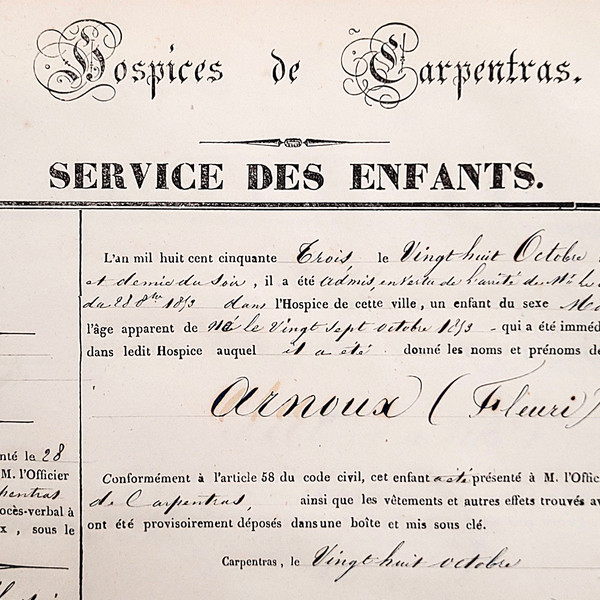 Hospices de Carpentras.
SERVICE DES ENFANTS.
L'an mil huit cent cinquante Trois le Vingt huit Octobre
et demie du soir, il a été admis, en vertu de l'arrêté de Mr le
du 28 8bre 1853 dans l'Hospice de cette ville, un enfant du sexe
l'âge apparent de né le Vingt sept octobre 1853 - qui a été imméd
dans ledit Hospice auquel il a été donné les noms et prénoms de
Arnoux (Fleuri)
nté le 28
M. l'Officier
pentras
ocès-verbal à
x, sous le
Conformément à l'article 58 du code civil, cet enfant a été présenté à M. l'Offic
de Carpentras, ainsi que les vêtements et autres effets trouvés av
ont été provisoirement déposés dans une boîte et mis sous clé.
Carpentras, le Vingt huit octobre